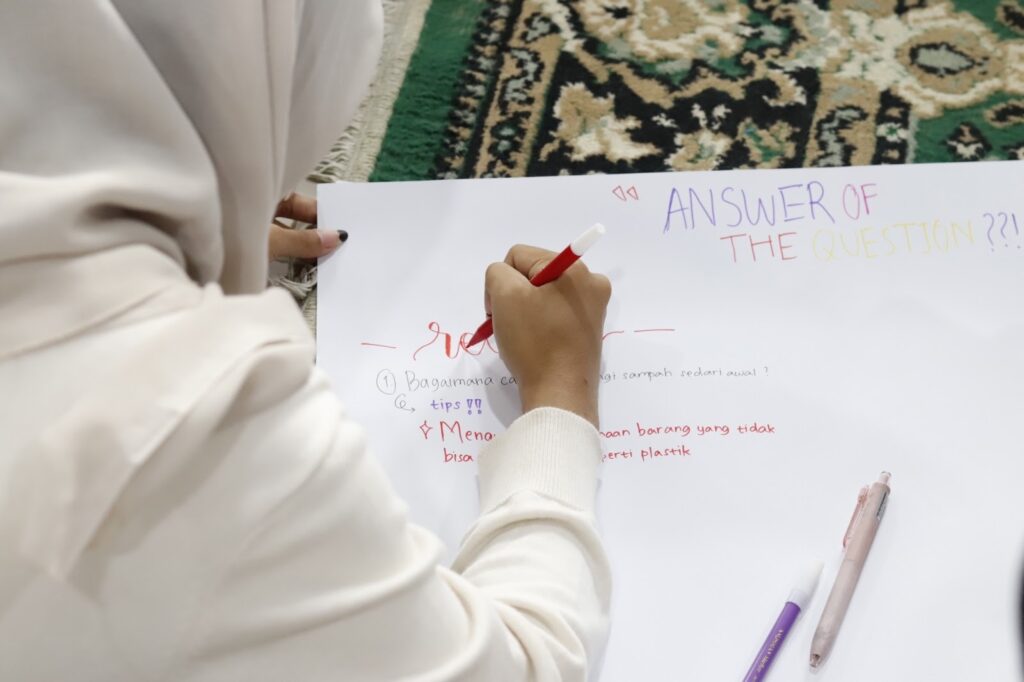 ANSWER OF
THE QUESTION ??!
① Bagaimana sampah sedari awal ?
tips !!
barang yang tidak
bisa plastik